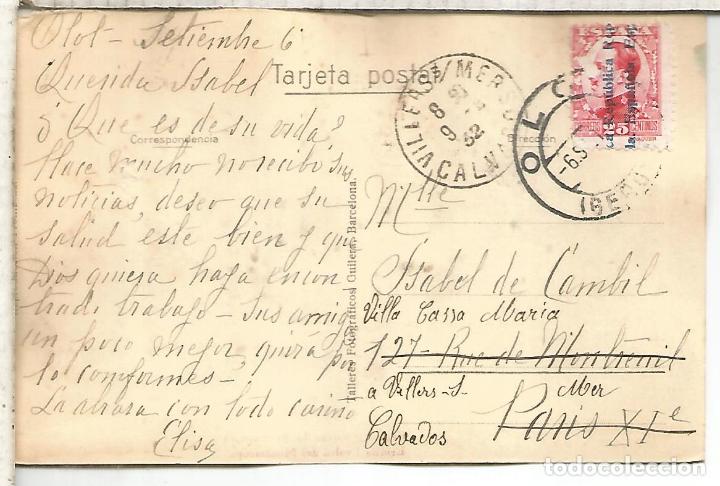 Olot - Setiembre 6
Querida Isabel
Tarjeta postal
¿ Que es de su vida?
Correspondencia
Dirección
Hace mucho no recibo sus
noticias, deseo que su
salud este bien y que
Dios quiera haya encon
trado trabajo - Sus amig
un poco mejor, quira por
lo conformes -
La abrasa con todo carino
Elisa
Talleres Fotográficos Guilera.- Barcelona.
VILLERS S/ MER
8 9
32
CALVADOS
OLOT
-6.S
(GERO
ESPAÑA
República Esp
la Española Rep
25 CENTIMOS
Mlle
Isabel de Cambil
Villa Cassa Maria
127 - Rue de Montreuil
a Villers-S. Mer
Paris XIe
Calvados
todocoleccion